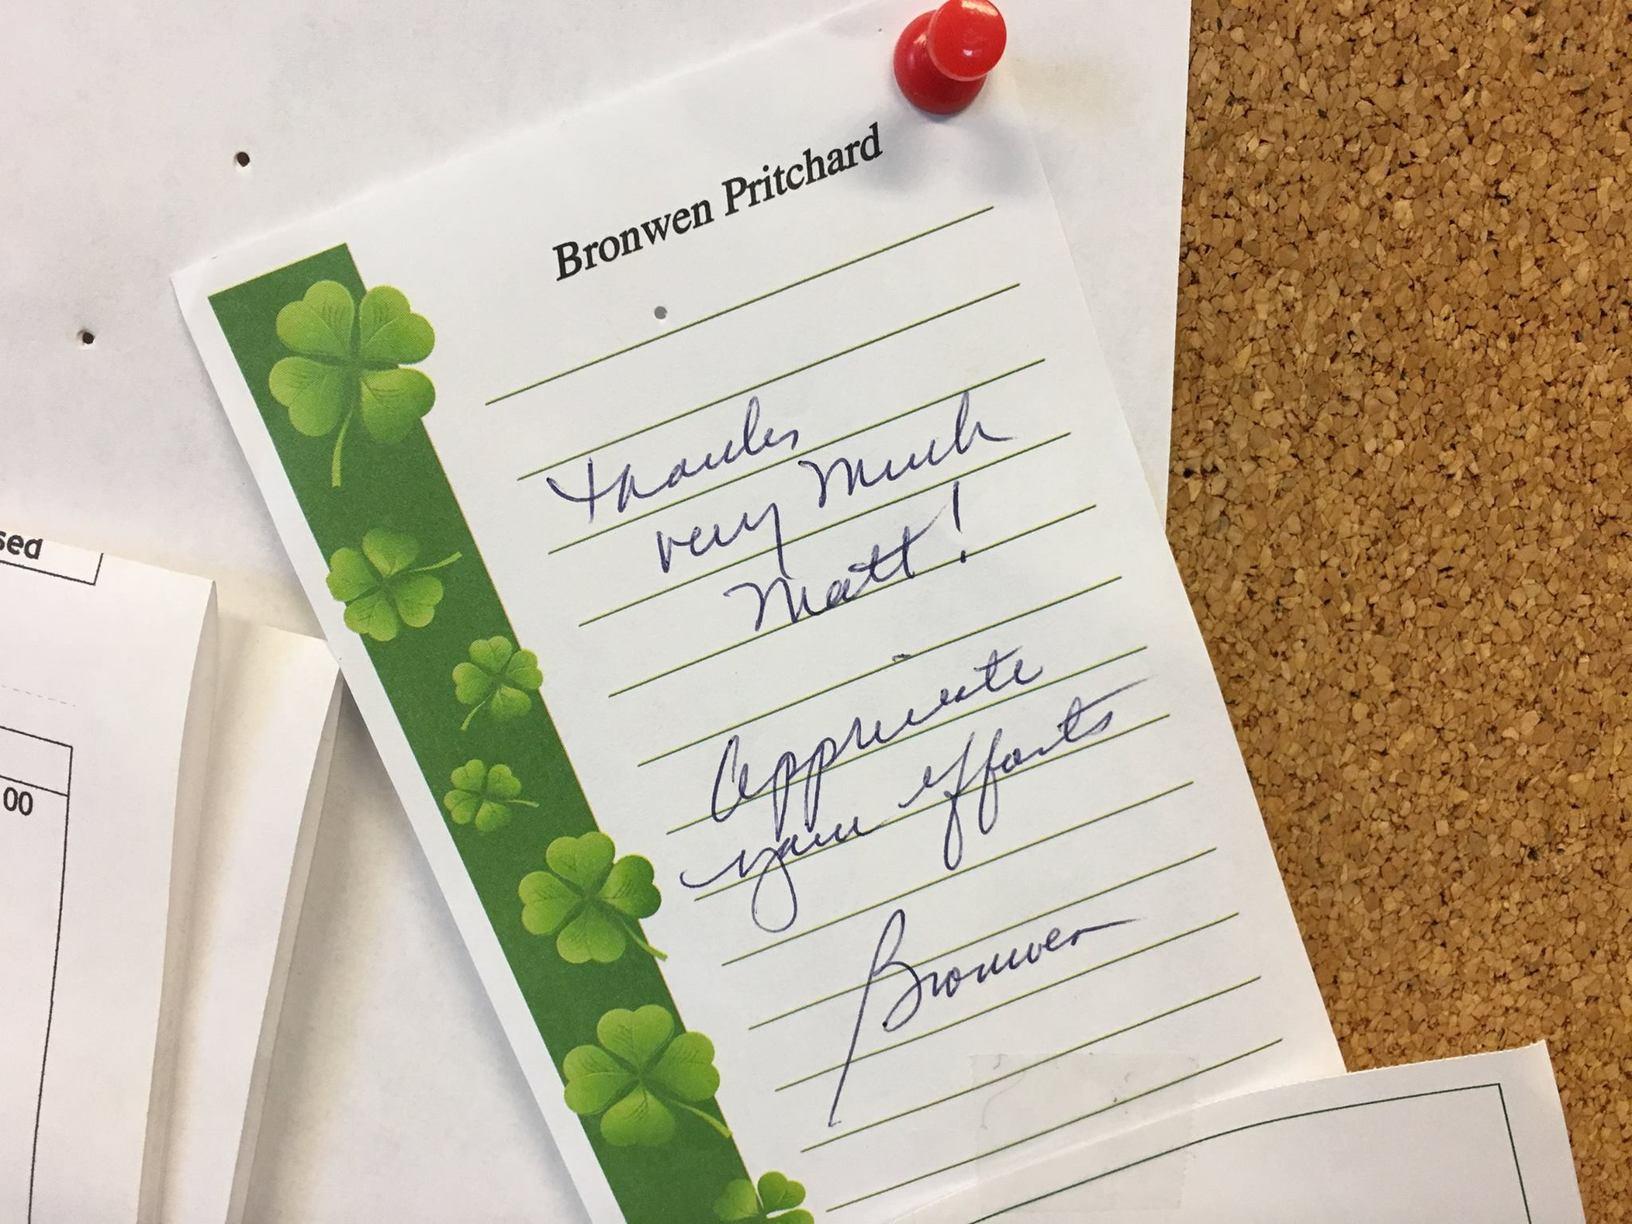 Bronwen Pritchard
Thanks
very Much
Matt!
Appreciate
your efforts
Bronwen
sed
00